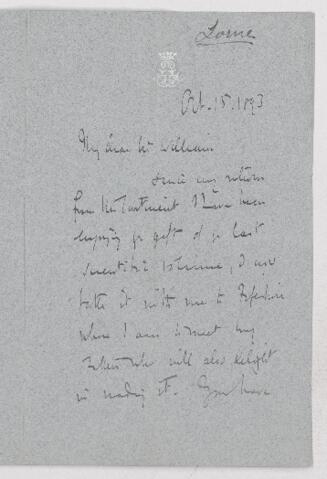 Lorne
Oct. 15. 1893
My dear Sir William
Since our return
from the Continent I have been
enjoying yr gift of yr last
scientific volume, & now
take it with me to
where I am to meet my
father who will also delight
in reading it. You have